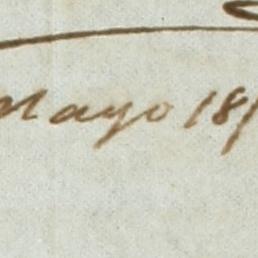 Mayo 18